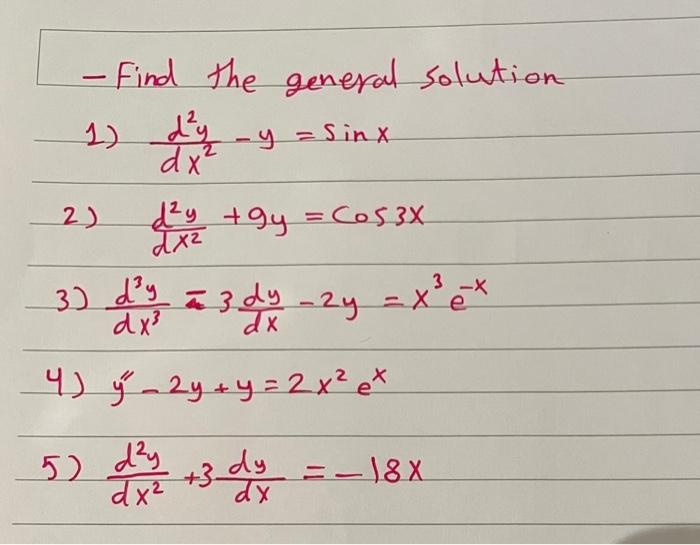 - Find the general solution
1) d²y/dx² - y = sin x
2) d²y/dx² + 9y = Cos 3x
3) d³y/dx³ - 3 dy/dx - 2y = x³ e⁻ˣ
4) y″ - 2y + y = 2x² eˣ
5) d²y/dx² + 3 dy/dx = - 18x